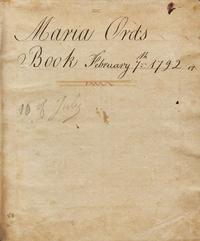 Maria Ords
Book February 7th 1792
10 of July